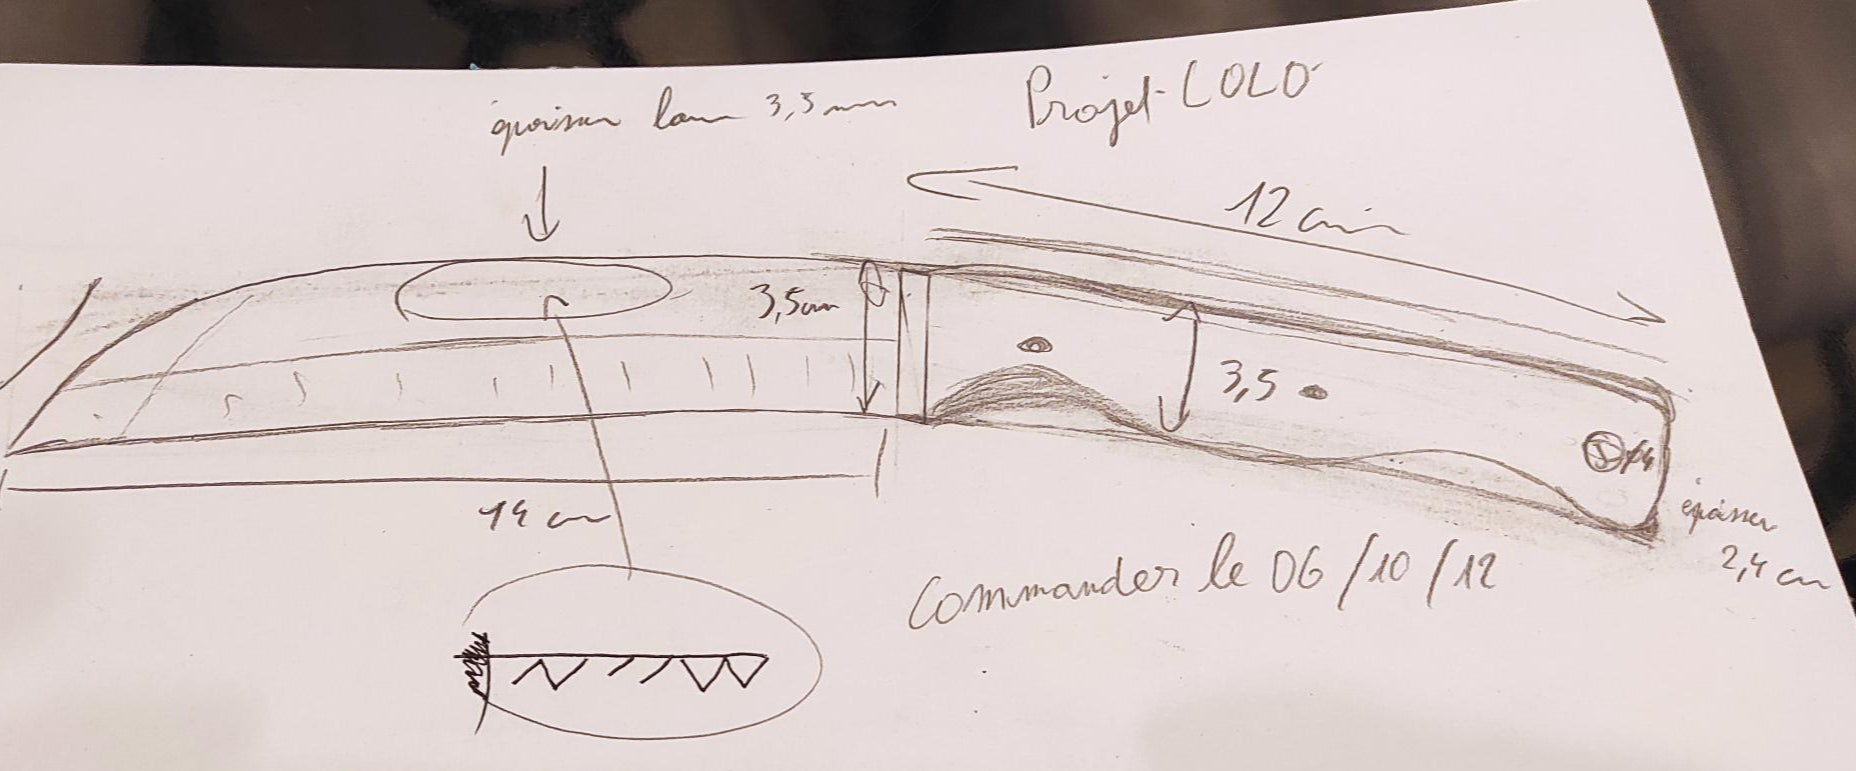 épaisseur lame 3,5mm
Projet LOLO
12 cm
3,5cm
3,5
14 cm
épaisseur
2,4 cm
Commander le 06/10/12